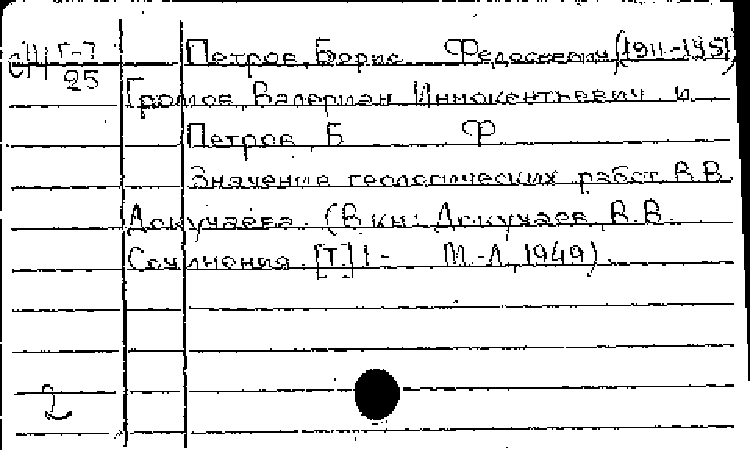 Г-7 Петров, Борис Федосеевич (1911-195
25
Громов, Валериан Иннокентьевич и
Петров, Б Ф
Значение геологических работ В.В.
Докучаева. (В кн: Докучаев, В.В.
Сочинения. [Т.] 1 - М.-Л., 1949).
2